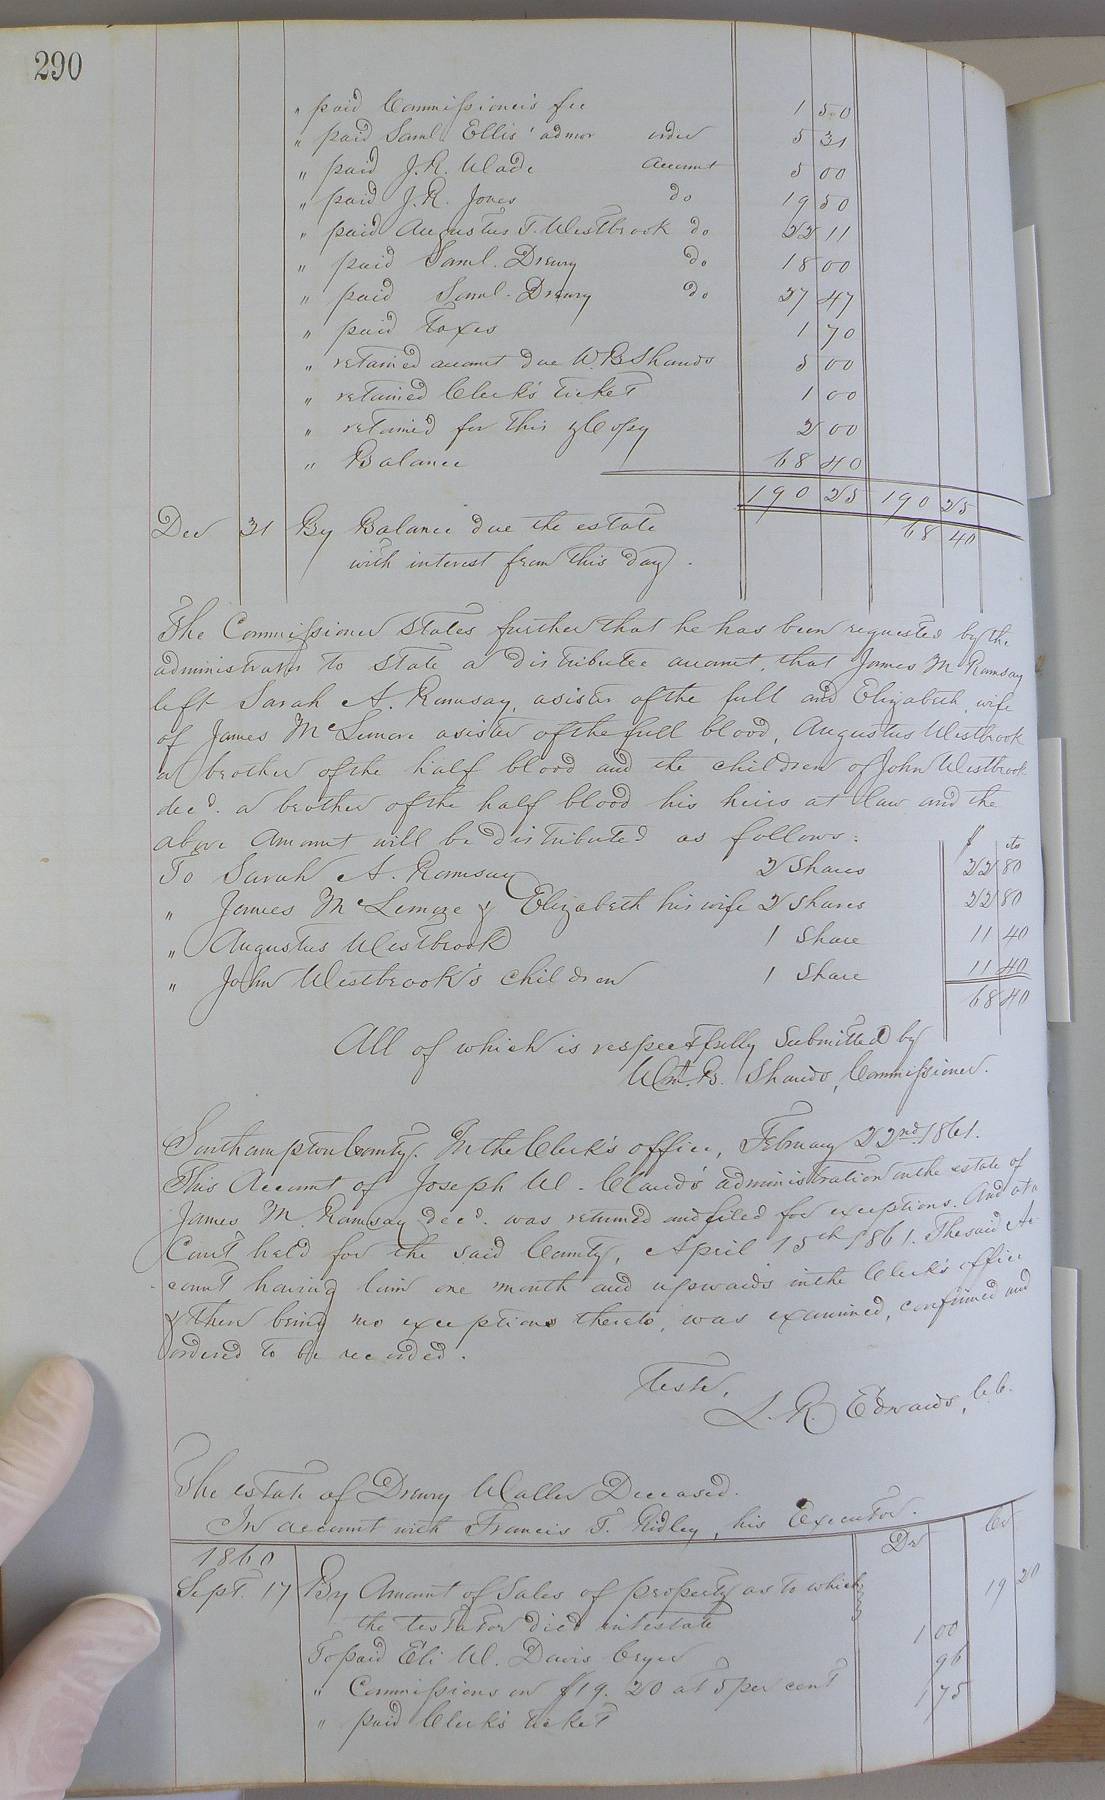 290
" paid Commissioner's fee 1 50
" paid Saml. Ellis' admor order 5 31
" paid J. R. Wade Account 5 00
" paid J. R. Jones do 19 50
" paid Augustus T. Westbrook do 22 11
" paid Saml. Drewry do 18 00
" paid Saml. Drewry do 27 47
" paid Taxes 1 70
" retained account due W. B. Shands 5 00
" retained Clerk's ticket 1 00
" retained for this & Copy 2 00
" Balance 68 40
190 25 190 25
Dec 31 By Balance due the estate 68 40
with interest from this day.
The Commissioner States further that he has been requested by the
administrator to state a distributee account, that James M Ramsay
left Sarah A. Ramsay, a sister of the full and Elizabeth, wife
of James McLemore a sister of the full blood, Augustus Westbrook
a brother of the half blood and the children of John Westbrook
decd. a brother of the half blood his heirs at law and the
above Amount will be distributed as follows: $ cts
To Sarah A. Ramsay 2 Shares 22 80
" James McLemore & Elizabeth his wife 2 Shares 22 80
" Augustus Westbrook 1 Share 11 40
" John Westbrook's children 1 Share 11 40
68 40
All of which is respectfully Submitted by
Wm. B. Shands, Commissioner.
Southampton County. In the Clerk's office, February 22nd. 1861.
This Account of Joseph W. Claud's administration on the estate of
James M. Ramsay decd. was returned and filed for exceptions. And at a
Court held for the said County, April 15th 1861. The said Ac-
count having lain one month and upwards in the Clerk's office
& there being no exceptions thereto, was examined, confirmed and
ordered to be recorded.
Teste,
L. R. Edwards, C.C.
The estate of Drewry Waller Deceased.
In account with Francis T. Ridley, his Executor.
1860 Dr Cr
Sept. 17 By Amount of Sales of property as to which 19 20
the testator died intestate
To paid Eli W. Davis Cryer 1 00
" Commissions on $19.20 at 5 per cent 96
" paid Clerk's ticket 1 75